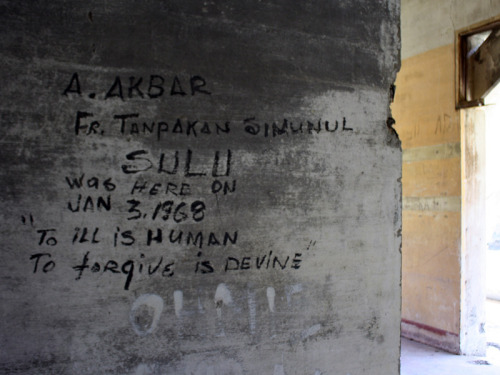 A. AKBAR
FR. TANPAKAN SIMUNUL
SULU
WAS HERE ON
JAN 3. 1968
"To ILL iS HUMAN
To forgive is DEVINE"